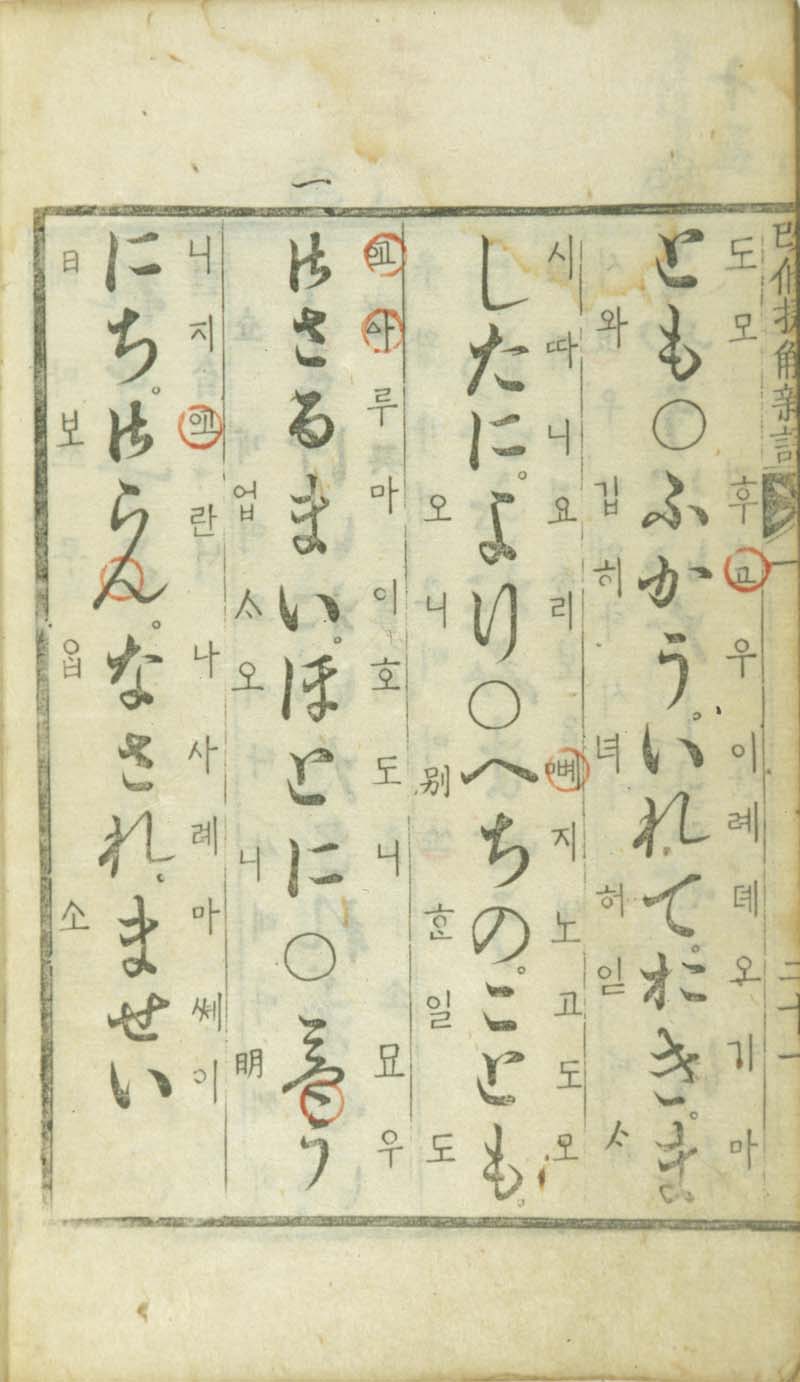 改修捷解新語 一 二十一
도모 후교우이례뎨오기마
とも○ふかう。いれて。おき。ま
와 깁히 녀허 읻 ᄉᆞ
시따니요리 ᄲᅦ지노고도모
したに。より○へちの。ことも。
오니 別ᄒᆞᆫ 일 도
루마이호도니 묘우
一
御さるまい。ほとに○みやう
업ᄉᆞ오 니 明
니지 란 나사례마쎄이
にち。御らん。なされませい
日 보 ᄋᆞᆸ 소